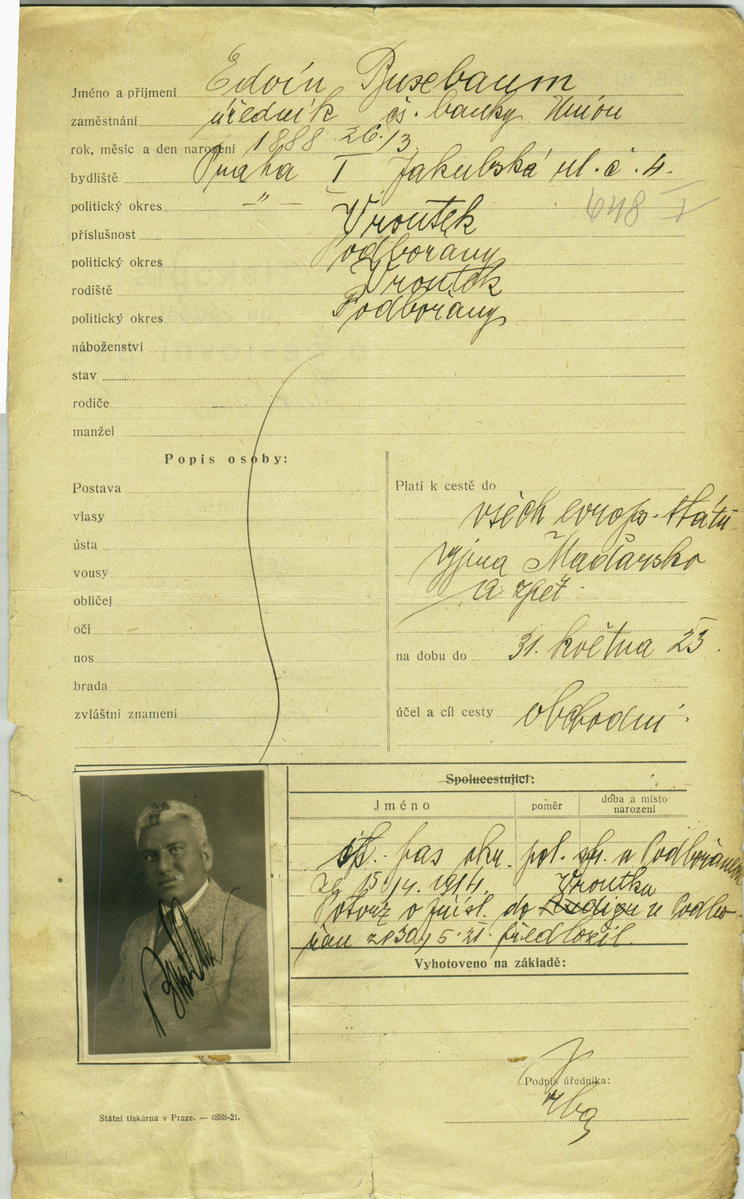 Jméno a příjmení Edvín Busebaum
zaměstnání úředník čs. banky Union
rok, měsíc a den narození 1888 26/3
bydliště Praha I Jakubská ul. č. 4.
politický okres —"— 648 I
příslušnost Vroutek
politický okres Podbořany
rodiště Vroutek
politický okres Podbořany
náboženství
stav
rodiče
manžel
Popis osoby:
Postava
vlasy
ústa
vousy
obličej
oči
nos
brada
zvláštní znamení
Platí k cestě do
všech evrop. států
vyjma Maďarsko
a zpět
na dobu do 31. května 23.
účel a cíl cesty obchodní
Spolucestující:
Jméno poměr doba a místo narození
pas okr. pol. spr. v Podbořanech
ze 15/4. 1914. Vroutku
Potvrz o přísl. do u Podbo-
řan ze 30/5 21 předložil.
Vyhotoveno na základě:
Podpis úředníka:
Státní tiskárna v Praze. — 4898-21.